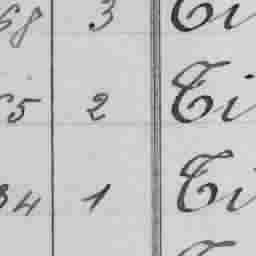 68 3 Ti
65 2 Ti
34 1 Ti